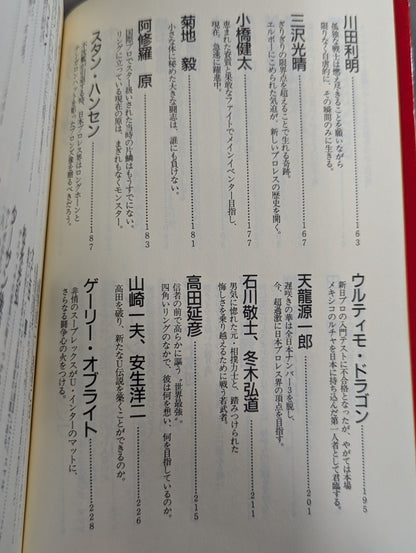 川田利明
孤独な戦士は燃え尽きることを願いながら
限りなく自虐的に、その瞬間のみに生きる。
163
三沢光晴
ぎりぎりの限界点を超えることで生れる奇跡。
エルボーにこめられた気迫が、新しいプロレスの歴史を開く。
167
小橋健太
恵まれた資質と果敢なファイトでメインイベンター目指し、
現在、急速に躍進中。
177
菊地 毅
小さな体に秘めた大きな闘志は、誰にも負けない。
181
阿修羅 原
国際プロでスター扱いされた当時の片鱗はもうすでにない。
リングに立っている現在の原は、まぎれもなくモンスター。
183
スタン・ハンセン
日本プロレス界はロングホーンと
ブロンズ像を贈るべきだろう。
187
ウルティモ・ドラゴン
新日プロの入門テストに不合格となったが、やがては本場
メキシコのルチャを日本に持ち込んだ第一人者として君臨する。
195
天龍源一郎
遅咲きの華は全日本ナンバー3を脱し、
今、超過激に日本プロレス界の頂点を目指す。
201
石川敬士、冬木弘道
男気に惚れた元・相撲力士と、踏みつけられた
悔しさを乗り越えるために戦う若武者。
211
高田延彦
信者の前で高らかに謳う〝世界最強〟。
四角いリングのなかで、彼は何を想い、何を目指しているのか。
215
山崎一夫、安生洋二
高田を破り、新たなU伝説を築くことができるのか。
226
ゲーリー・オブライト
非情のスープレックスがU・インターのマットに、
さらなる闘争心の火をつける。
228